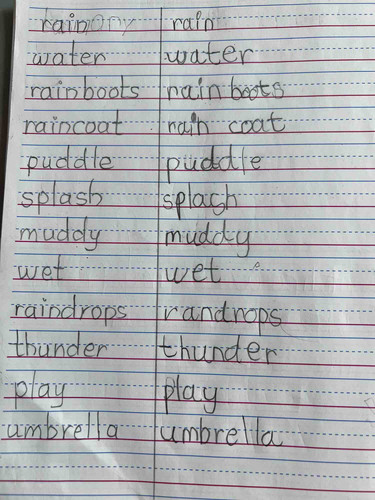 rain rain
water water
rainboots rain boots
raincoat rain coat
puddle puddle
splash splash
muddy muddy
wet wet
raindrops randrops
thunder thunder
play play
umbrella umbrella